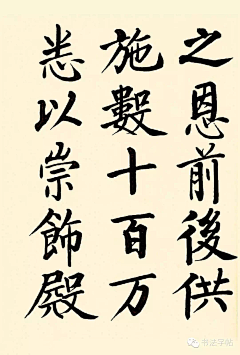 之恩前後供
施數十百万
悉以崇飾殿
书法字帖